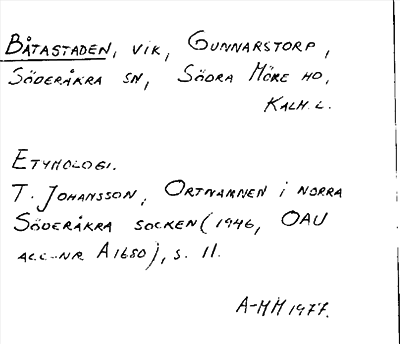 BÅTASTADEN, VIK, GUNNARSTORP,
SÖDERÅKRA SN, SÖDRA MÖRE HD,
KALM. L.
ETYMOLOGI.
T. JOHANSSON, ORTNAMNEN I NORRA
SÖDERÅKRA SOCKEN (1946, OAU
ACC-NR A1680), S. 11.
A-MH 1977.